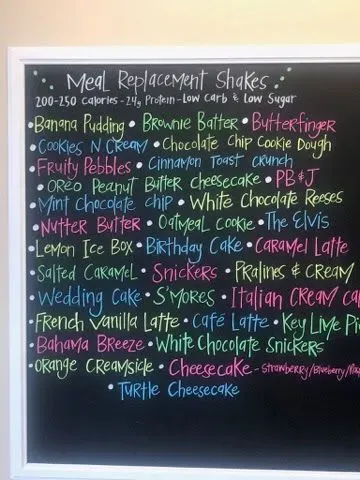 Meal Replacement Shakes
200-250 Calories - 24g Protein - Low Carb & Low Sugar
• Banana Pudding • Brownie Batter • Butterfinger
• Cookies N Cream • Chocolate Chip Cookie Dough
• Fruity Pebbles • Cinnamon Toast Crunch
• Oreo Peanut Butter Cheesecake • PB & J
• Mint Chocolate Chip • White Chocolate Reeses
• Nutter Butter • Oatmeal Cookie • The Elvis
• Lemon Ice Box • Birthday Cake • Caramel Latte
• Salted Caramel • Snickers • Pralines & Cream
• Wedding Cake • S'mores • Italian Cream
• French Vanilla Latte • Café Latte • Key Lime
• Bahama Breeze • White Chocolate Snickers
• Orange Creamsicle • Cheesecake - Strawberry/Blueberry/
• Turtle Cheesecake